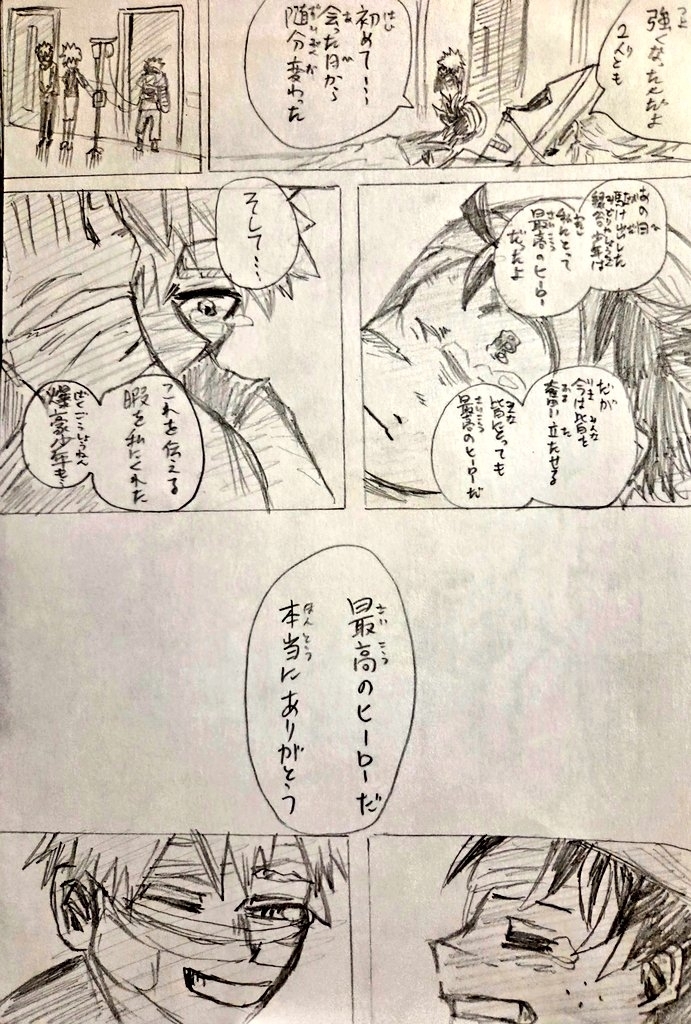 強くなったんだよ
2人とも
初めて…
会った日から
随分変わった
あの日
駆け出した
緑谷少年は
私にとって
最高のヒーロー
だったよ
だが
今は皆を
奮い立たせる
皆にとっても
最高のヒーローだ
そして…
これを伝える
暇を私にくれた
爆豪少年も…
最高のヒーローだ
本当にありがとう